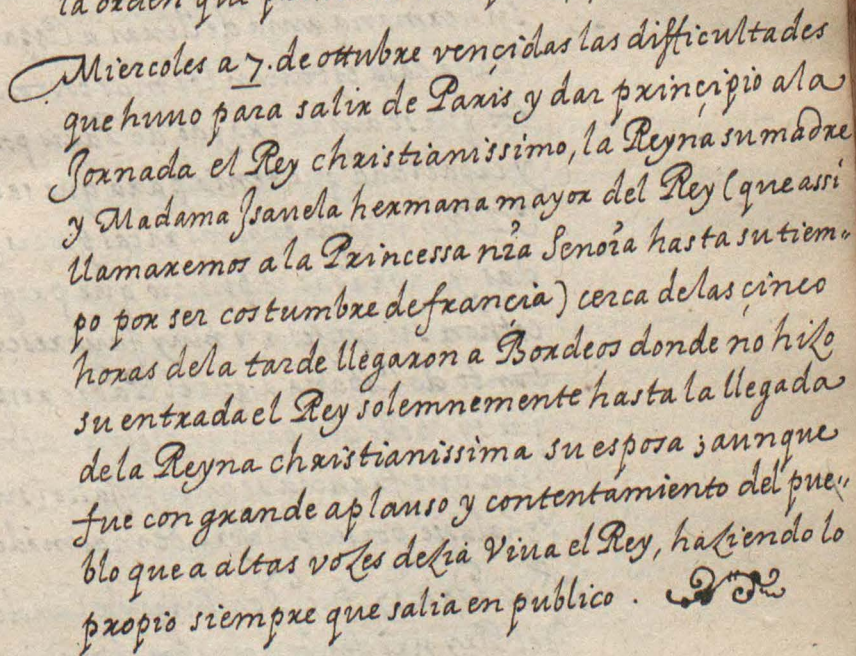 la orden que
Miercoles a 7. de ottubre vençidas las difficultades
que huuo para salir de Paris y dar prinçipio a la
Jornada el Rey christianissimo, la Reyna su madre
y Madama Jsauela hermana mayor del Rey (que assi
llamaremos a la Princessa nr̃a Senora hasta su tiem-
po por ser costumbre de francia) cerca de las çinco
horas de la tarde llegaron a Bordeos donde no hizo
su entrada el Rey solemnemente hasta la llegada
de la Reyna christianissima su esposa ; aunque
fue con grande aplauso y contentamiento del pue-
blo que a altas vozes dezia Viua el Rey, haziendo lo
propio siempre que salia en publico .